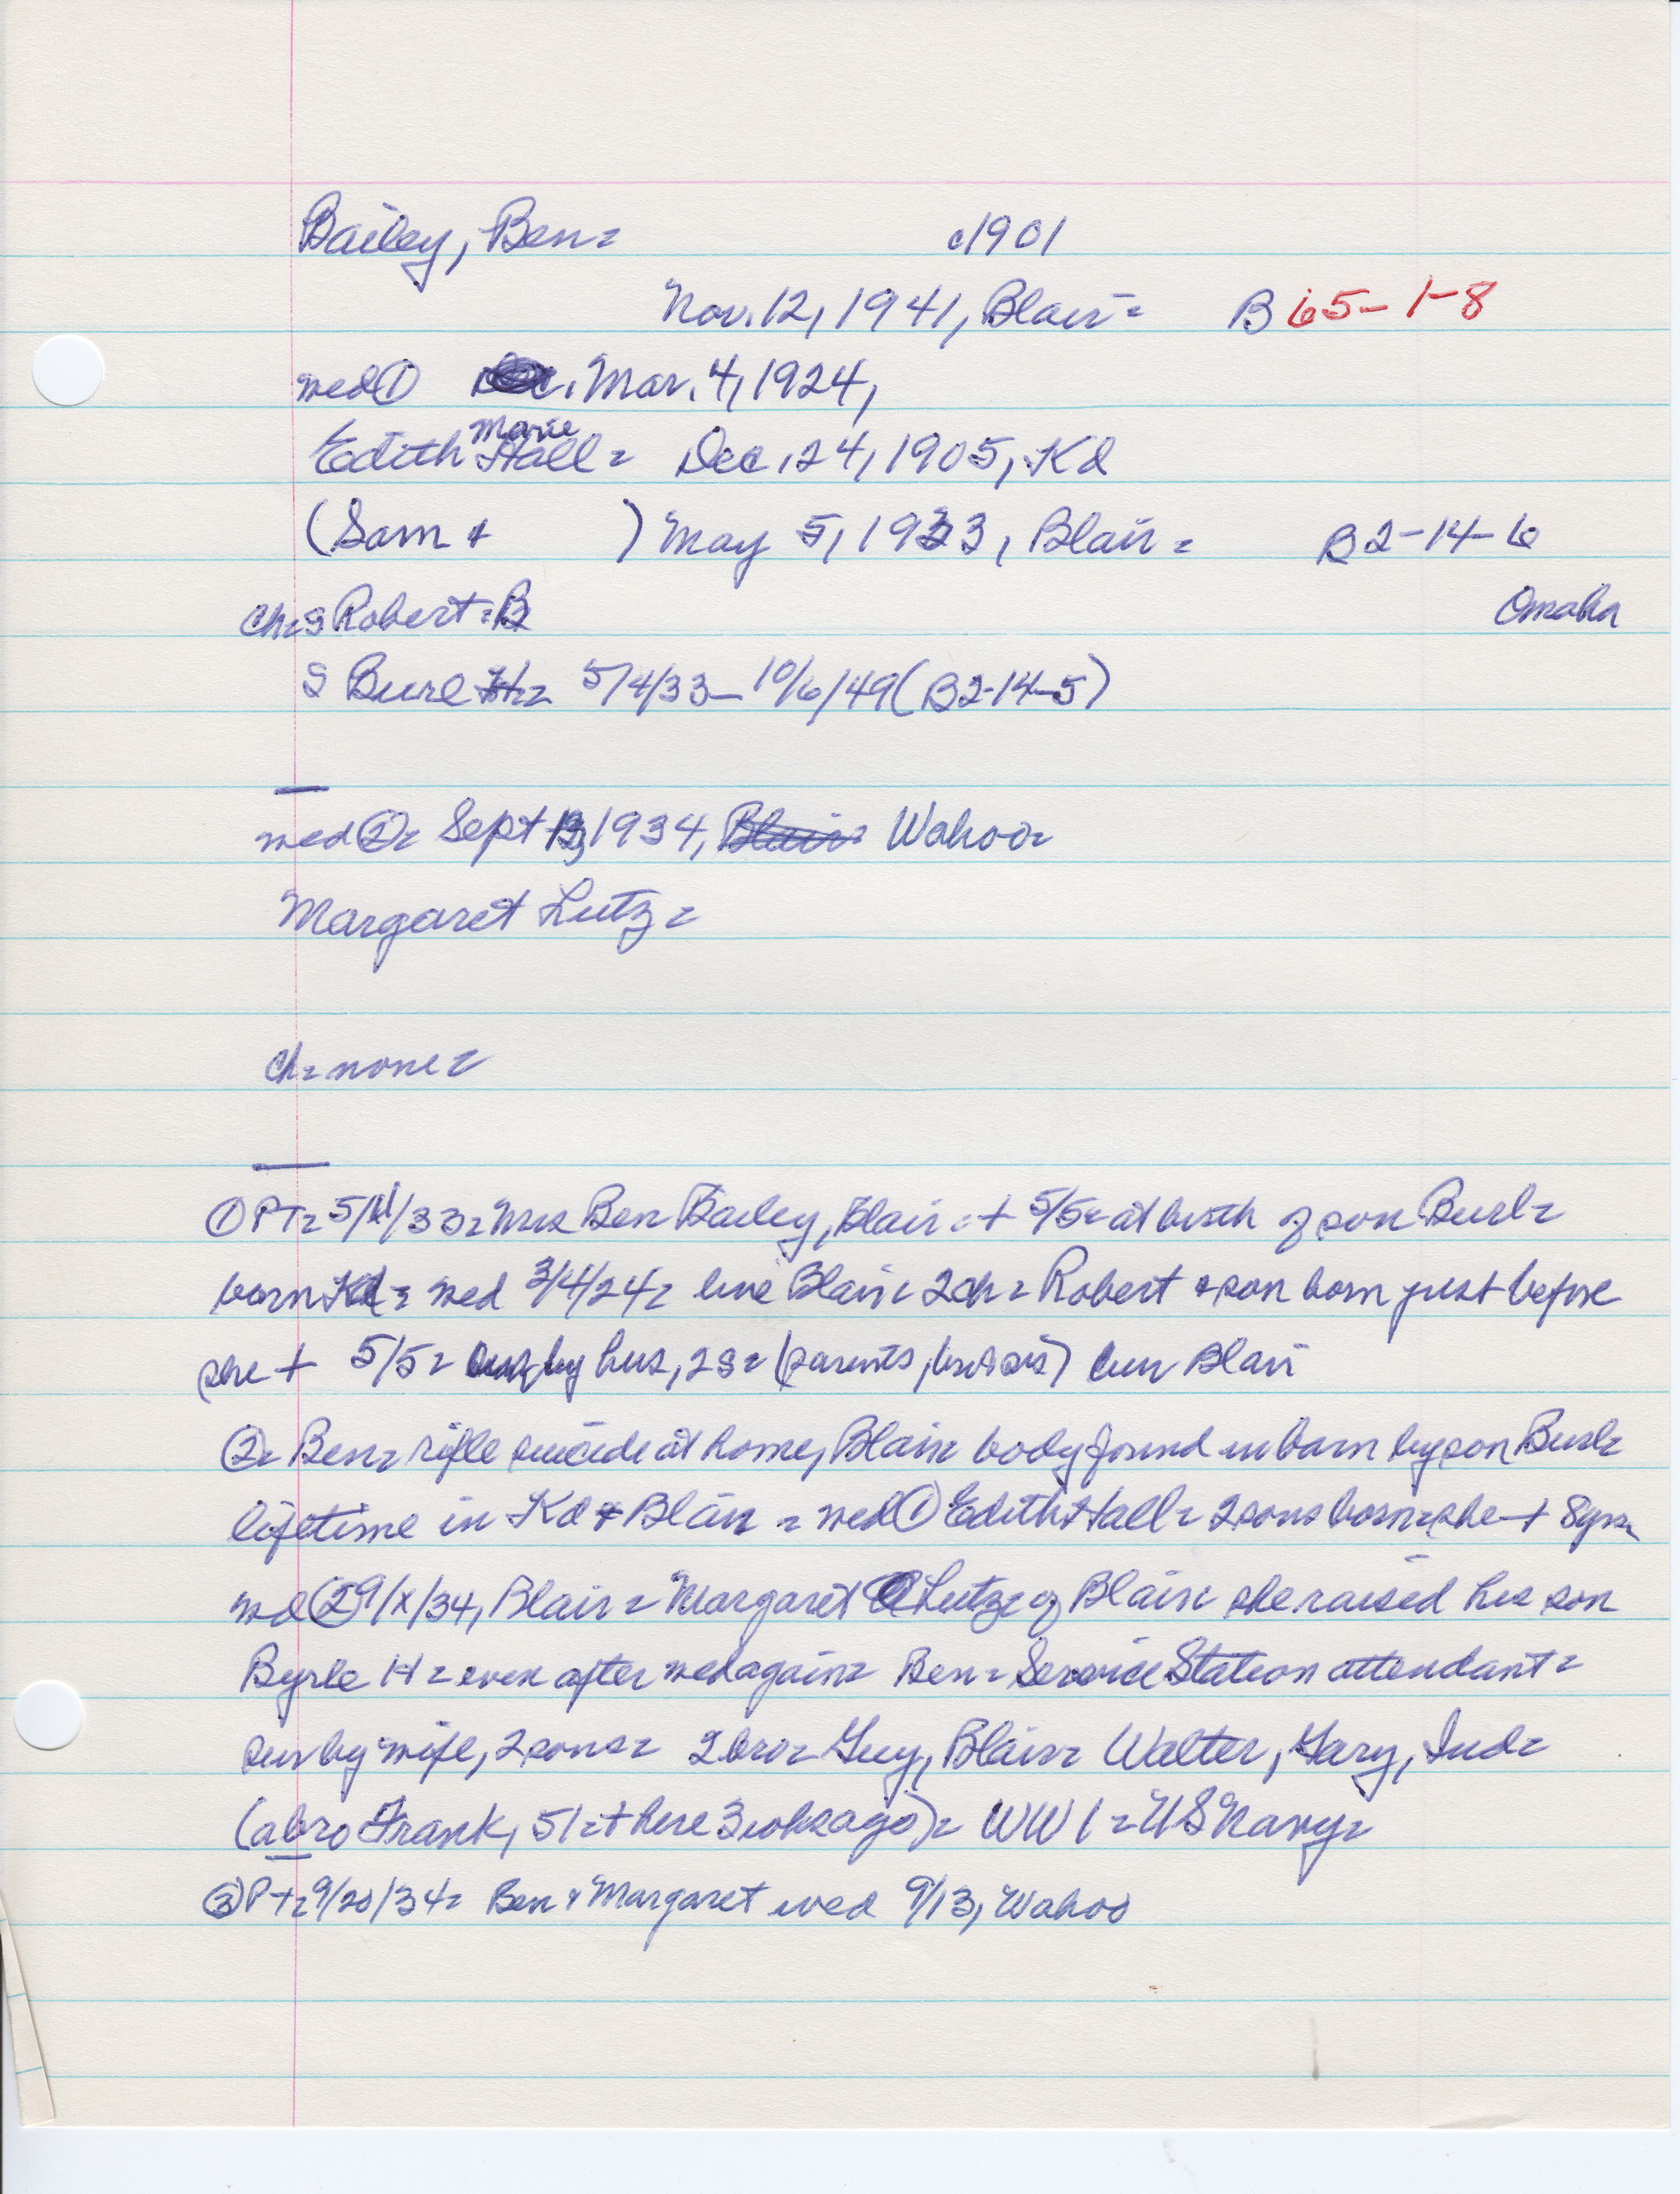 Bailey, Ben= c1901
Nov. 12, 1941, Blair= B 65-1-8
wed ① Mar. 4, 1924,
Edith Marie Hall= Dec. 24, 1905, Kd
(Sam + ) May 5, 1933, Blair= B2-14-6
ch= S Robert= B Omaha
S Burl H= 5/4/33- 10/6/49 (B2-14-5)
wed ②= Sept 13, 1934, Blair= Wahoo=
Margaret Lutz=
ch= none=
① PT= 5/11/33= Mrs Ben Bailey, Blair= + 5/5= at birth of son Burl=
born Kd= wed 3/4/24= live Blair= 2ch= Robert + son born just before
she + 5/5= by hus, 2S= (parents, bro+sis) bur Blair
②= Ben= rifle suicide at home, Blair= body found in barn by son Burl=
lifetime in Kd + Blair= wed ① Edith Hall= 2 sons born= she + 8yrs
wd ② 9/x/34, Blair= Margaret Lutz= of Blair= she raised his son
Byrle H= even after wed again= Ben= Service Station attendant=
sur by wife, 2 sons= 2 bro= Guy, Blair= Walter, Gary, Ind=
(a bro Frank, 51= + here 3 wks ago)= WW1= US Navy=
③ PT= 9/20/34= Ben + Margaret wed 9/13, Wahoo